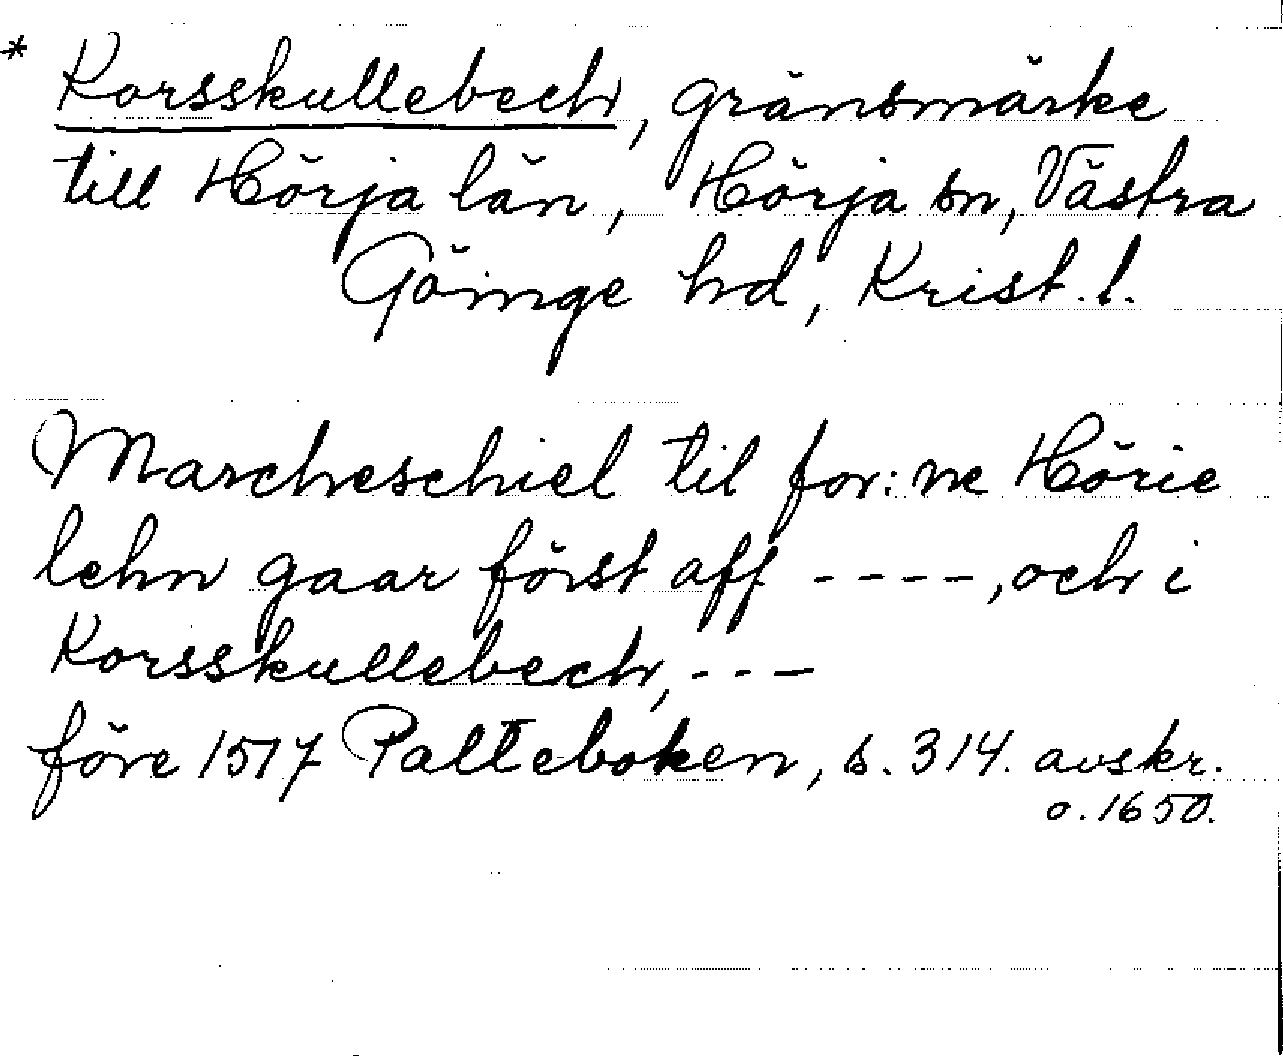 * Korsskullebech, gränsmärke
till Hörja län, Hörja sn, Västra
Göinge hd, Krist. l.
Marcheschiel til for: ne Hörie
lehn gaar först aff ----, och i
Korsskullebech, ---
före 1517 Palteboken, s. 314. avskr.
o. 1650.